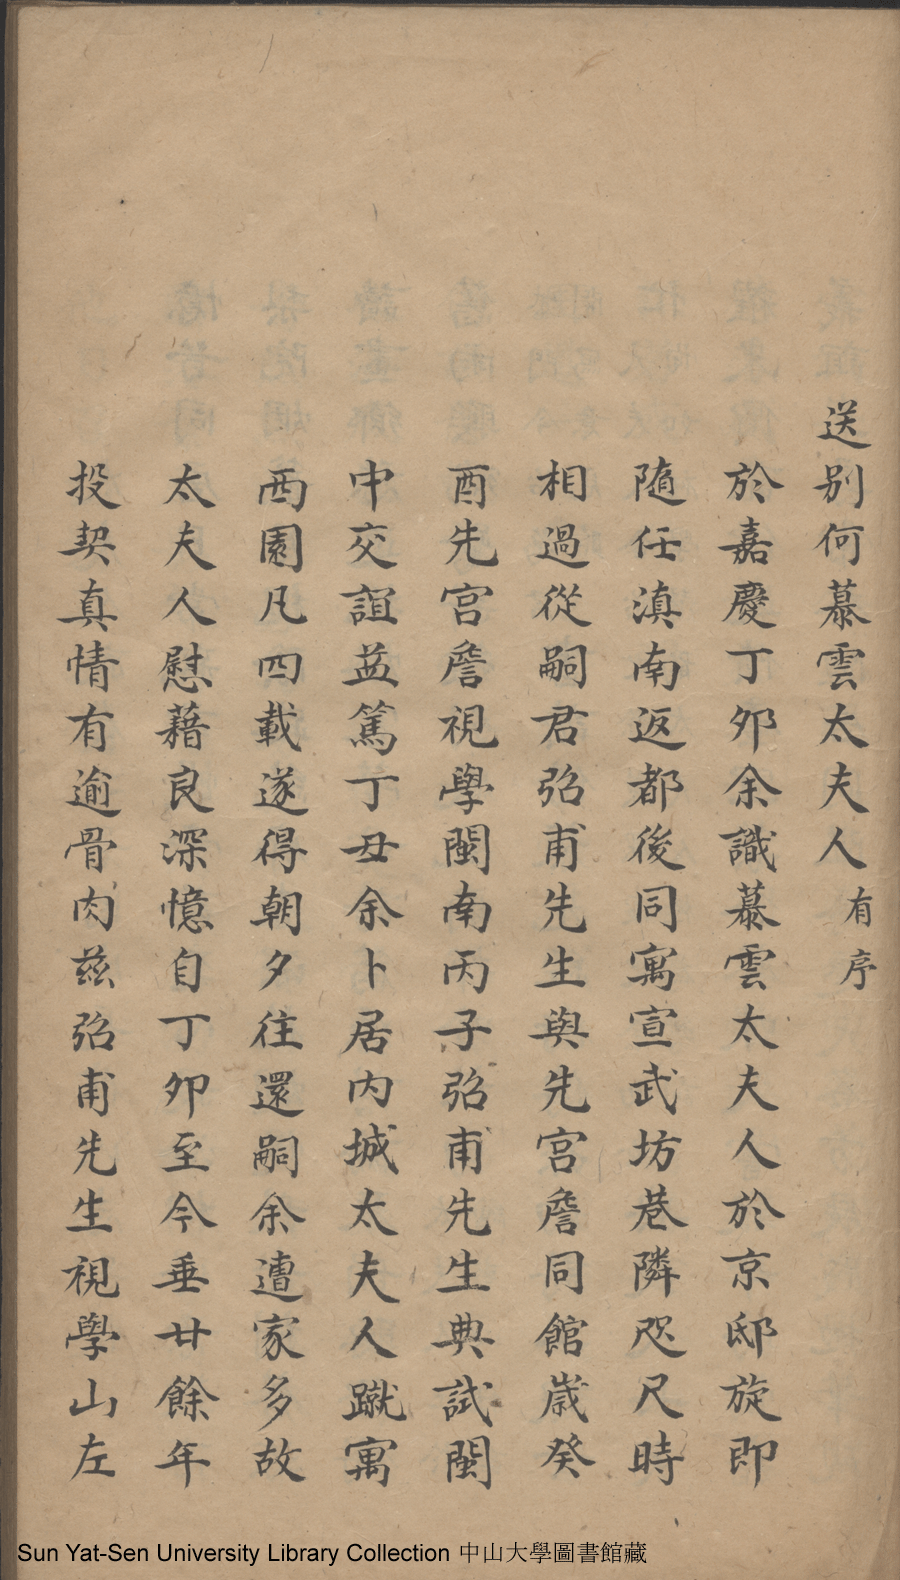 送别何慕雲太夫人有序
於嘉慶丁夘余識慕雲太夫人於京邸旋即
隨任滇南返都後同寓宣武坊巷隣咫尺時
相過從嗣君弨甫先生與先宮詹同館嵗癸
酉先宮詹視學閩南丙子弨甫先生典試閩
中交誼益篤丁丑余卜居内城太夫人蹴寓
西園凡四載遂得朝夕往還嗣余遭家多故
太夫人慰藉良深憶自丁夘至今垂廿餘年
投契真情有逾骨肉兹弨甫先生視學山左
Sun Yat-Sen University Library Collection 中山大學圖書館藏